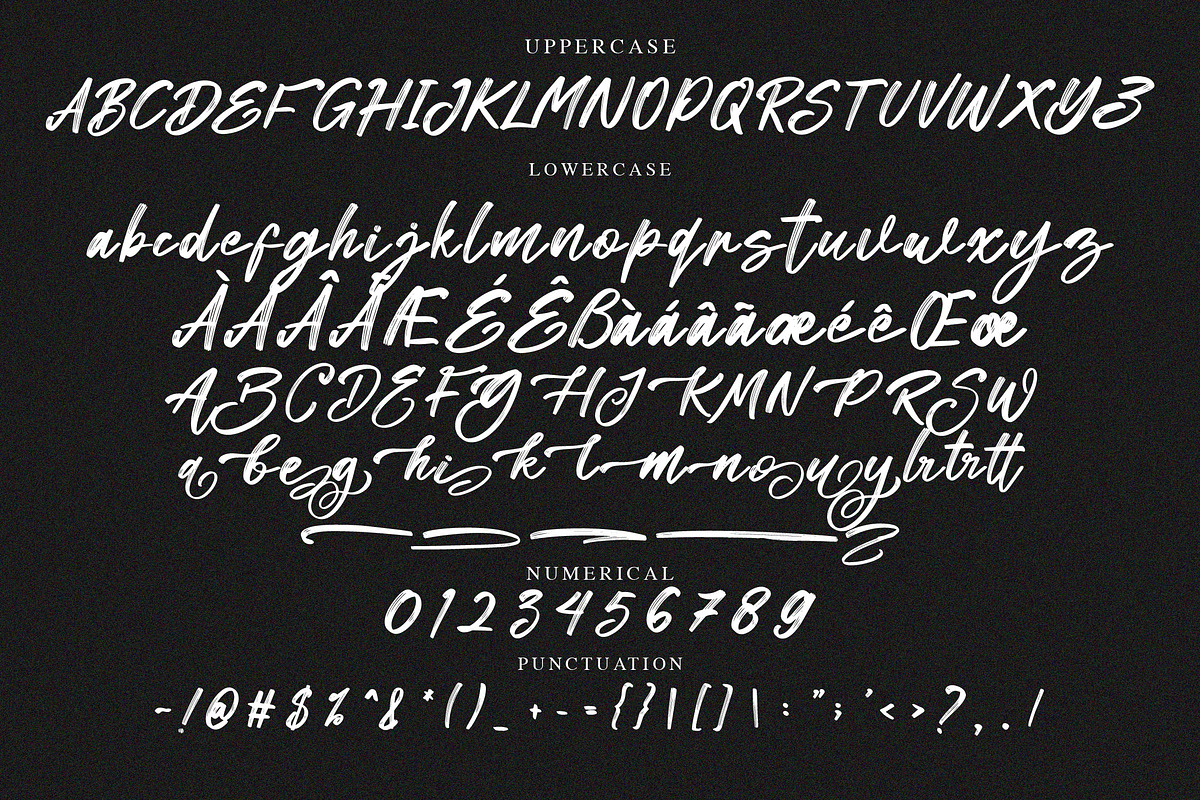 UPPERCASE
ABCDEFGHIJKLMNOPQRSTUVWXYZ
LOWERCASE
abcdefghijklmnopqrstuvwxyz
ÀÁÂÃÆÉÊBàáâãæéêŒœ
ABCDEFGHIJKMNPRSW
abeghiklmnouylrtrtt
NUMERICAL
0123456789
PUNCTUATION
~!@#$%^&*()_+-={}|[]|:";'<>?,./